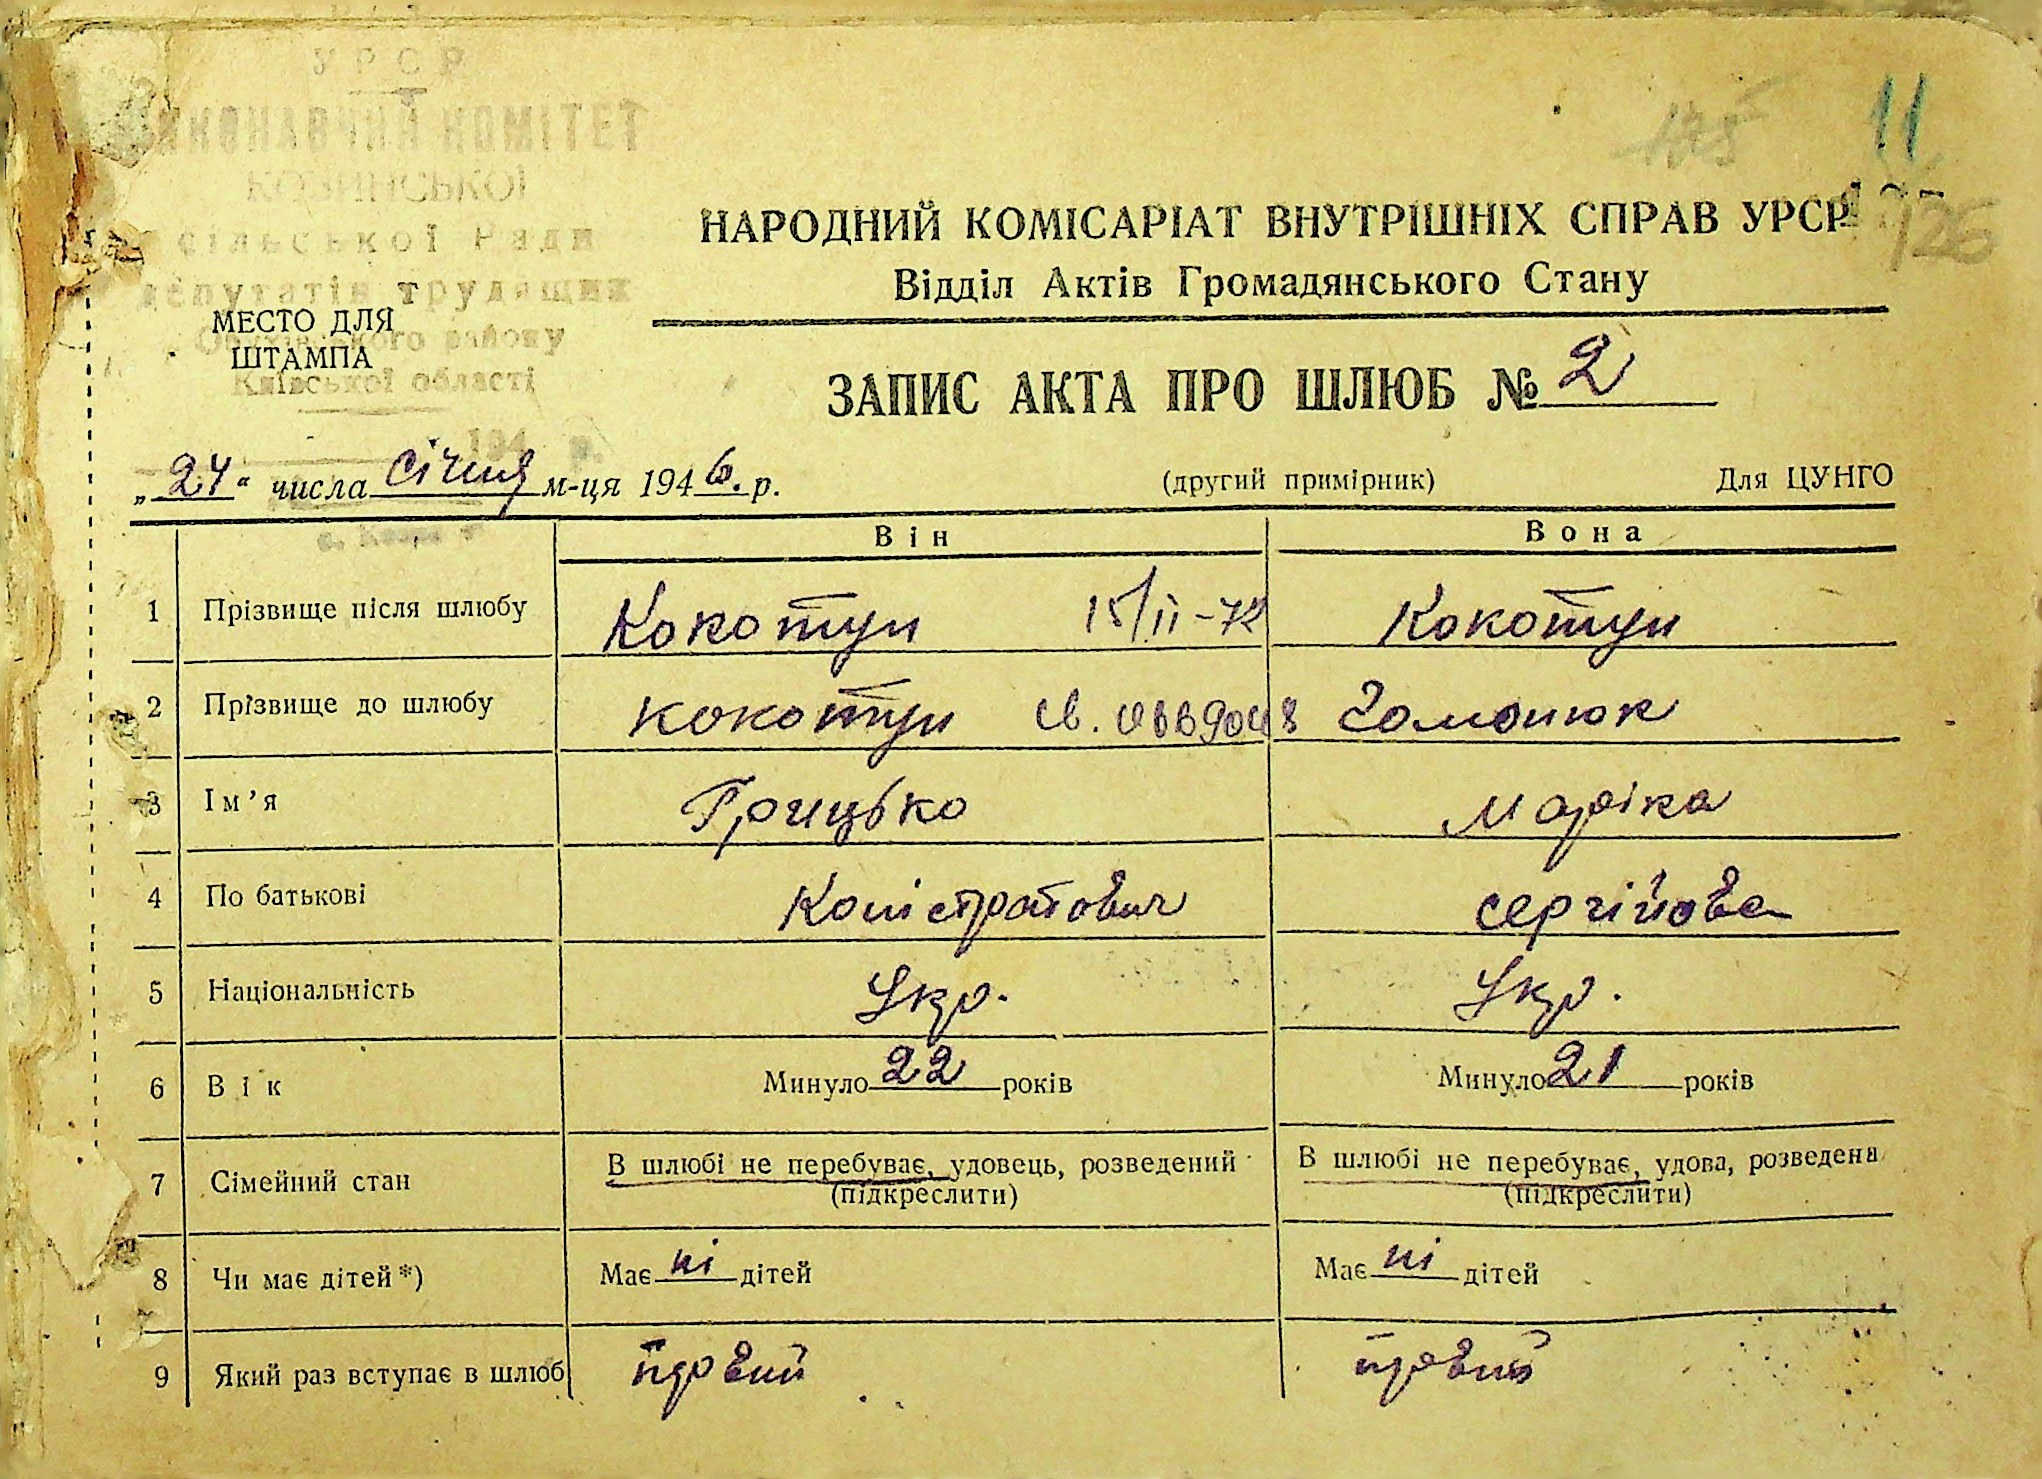 УРСР
ВИКОНАВЧИЙ КОМІТЕТ
КОЗИНСЬКОЇ
сільської Ради
депутатів трудящих
Обухівського району
Київської області
194 р.
МЕСТО ДЛЯ
ШТАМПА
175
11
126
НАРОДНИЙ КОМІСАРІАТ ВНУТРІШНІХ СПРАВ УРСР
Відділ Актів Громадянського Стану
ЗАПИС АКТА ПРО ШЛЮБ № 2
„24“ числа січня м-ця 1946. р.
(другий примірник) Для ЦУНГО
Він Вона
1 Прізвище після шлюбу Кокотун 15/II-72 Кокотун
2 Прізвище до шлюбу Кокотун св. Гомонюк
3 Ім’я Грицько Маріка
4 По батькові Каністратович Сергійовна
5 Національність Укр. Укр.
6 Вік Минуло 22 років Минуло 21 років
7 Сімейний стан В шлюбі не перебуває, удовець, розведений В шлюбі не перебуває, удова, розведена
(підкреслити) (підкреслити)
8 Чи має дітей*) Має ні дітей Має ні дітей
9 Який раз вступає в шлюб первий первий